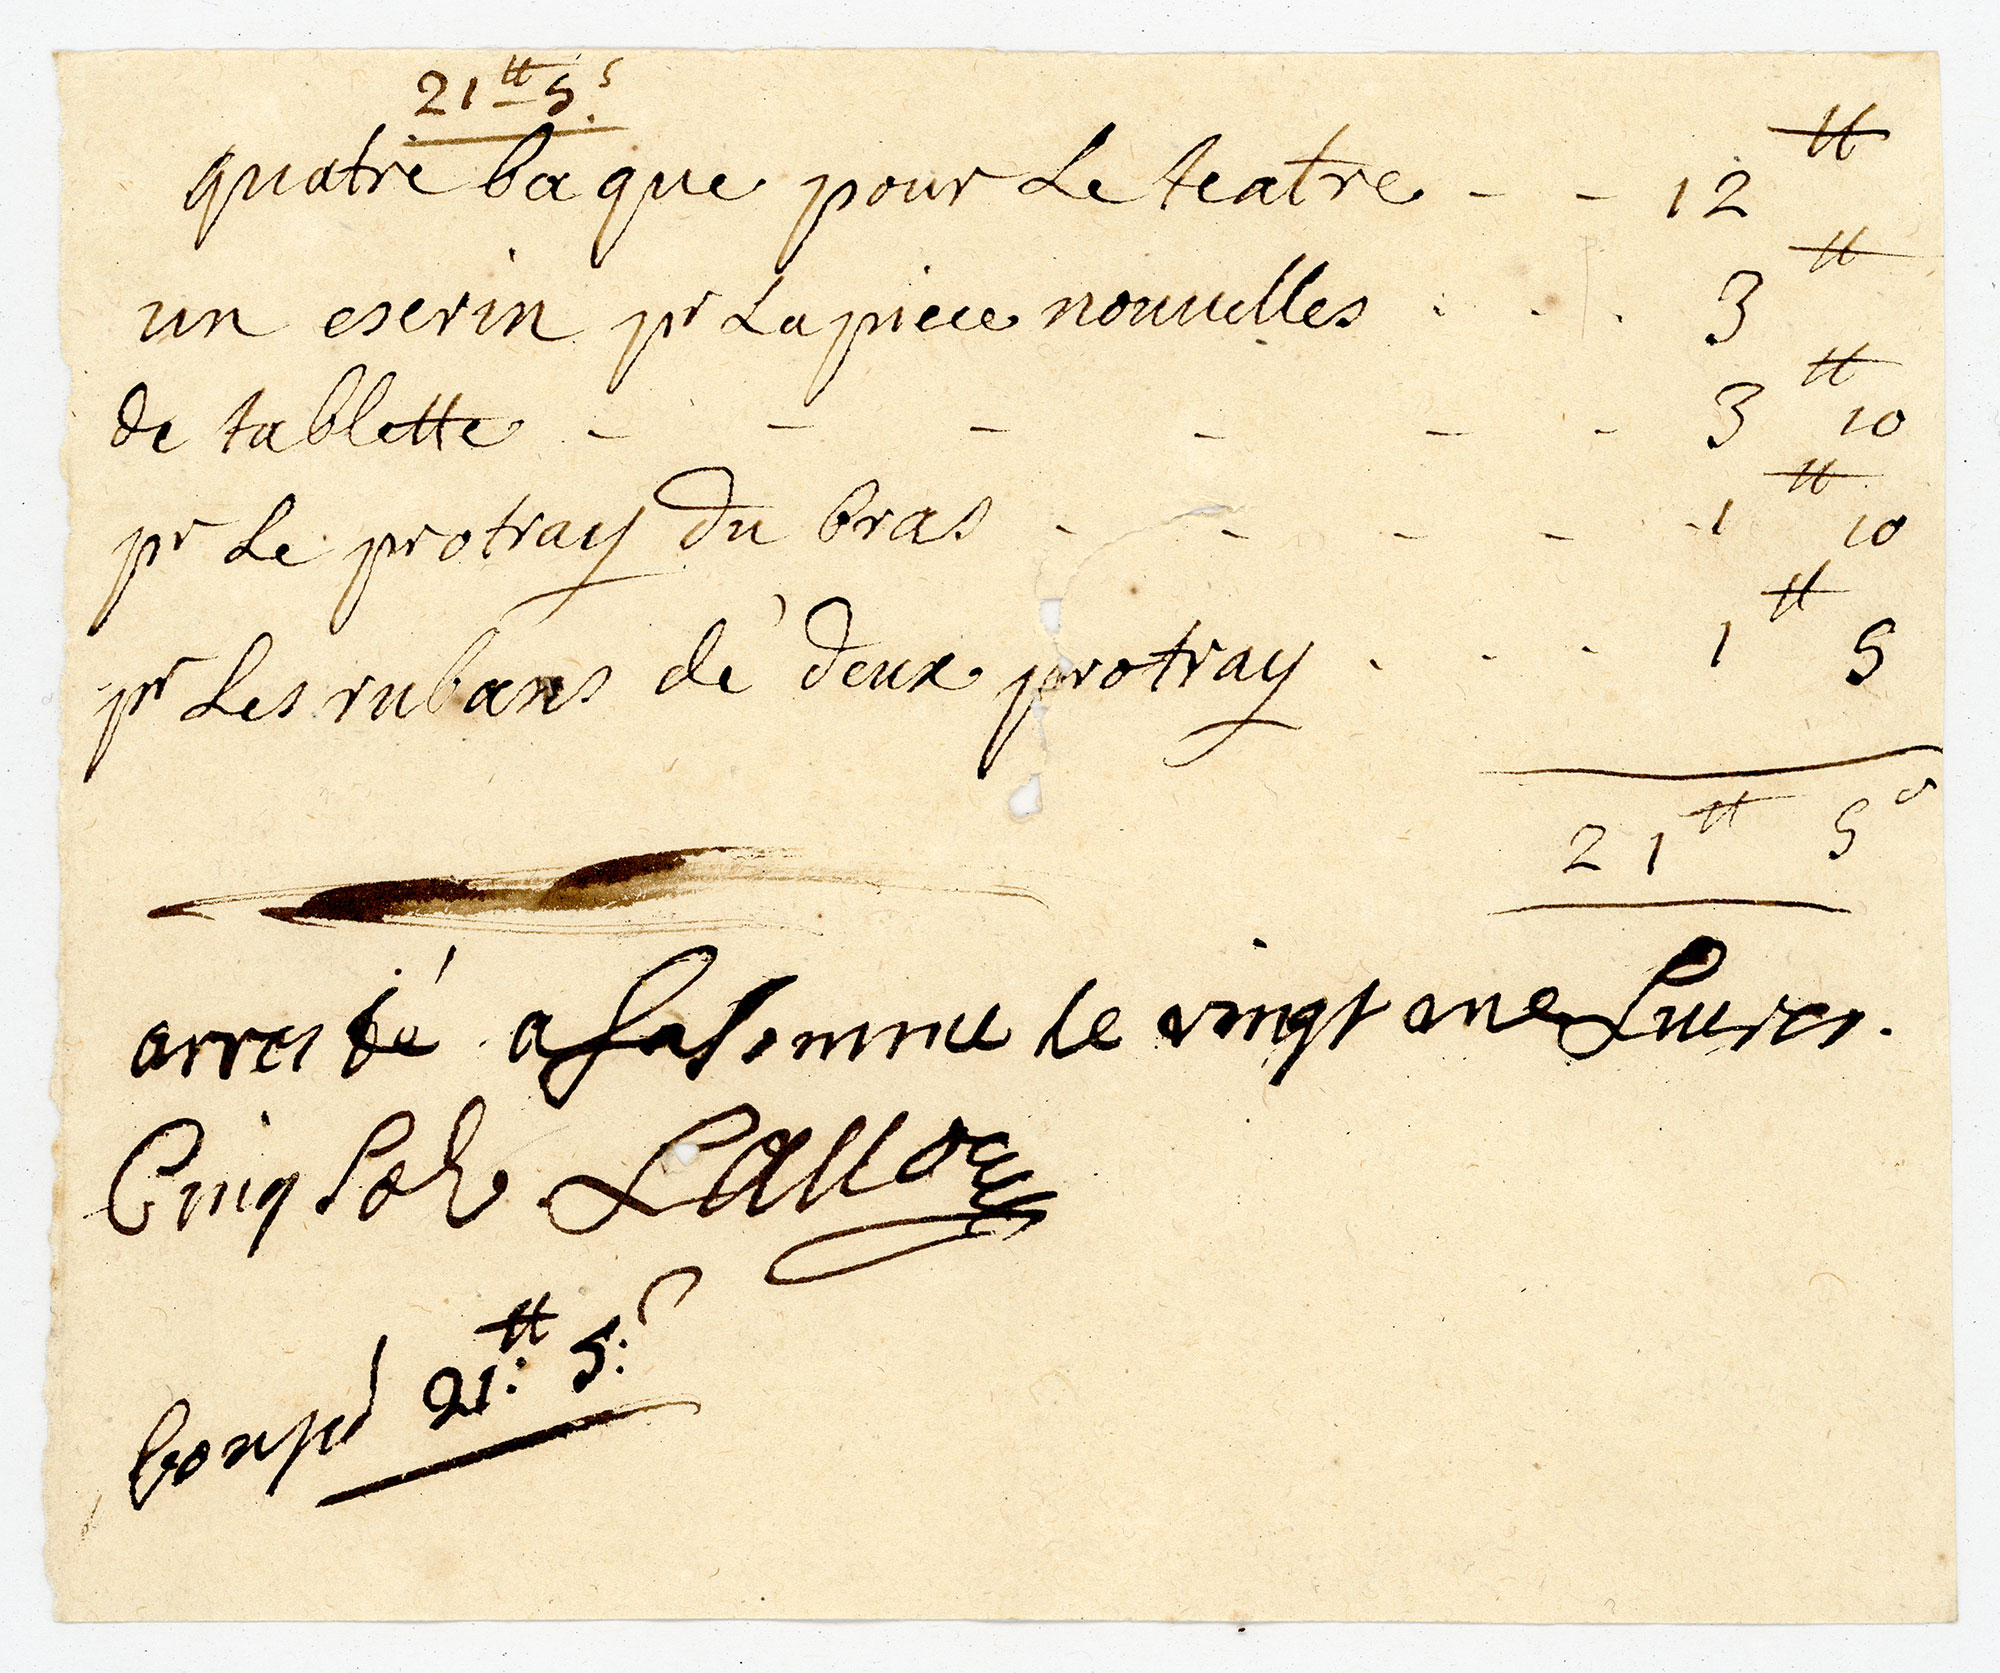 21ᵗᵗ 5ˢ
quatre baque pour Le teatre - - 12ᵗᵗ
un eserin pʳ La piece nouuelles . . . 3ᵗᵗ
de tablette - - - - - - 3ᵗᵗ 10
pʳ Le protray du bras - - - - - 1ᵗᵗ 10
pʳ Les rubans de deux protray . . . 1ᵗᵗ 5
21ᵗᵗ 5ˢ
arresté a la somme de vingt une Liures.
Cinq Sols
21ᵗᵗ 5ˢ